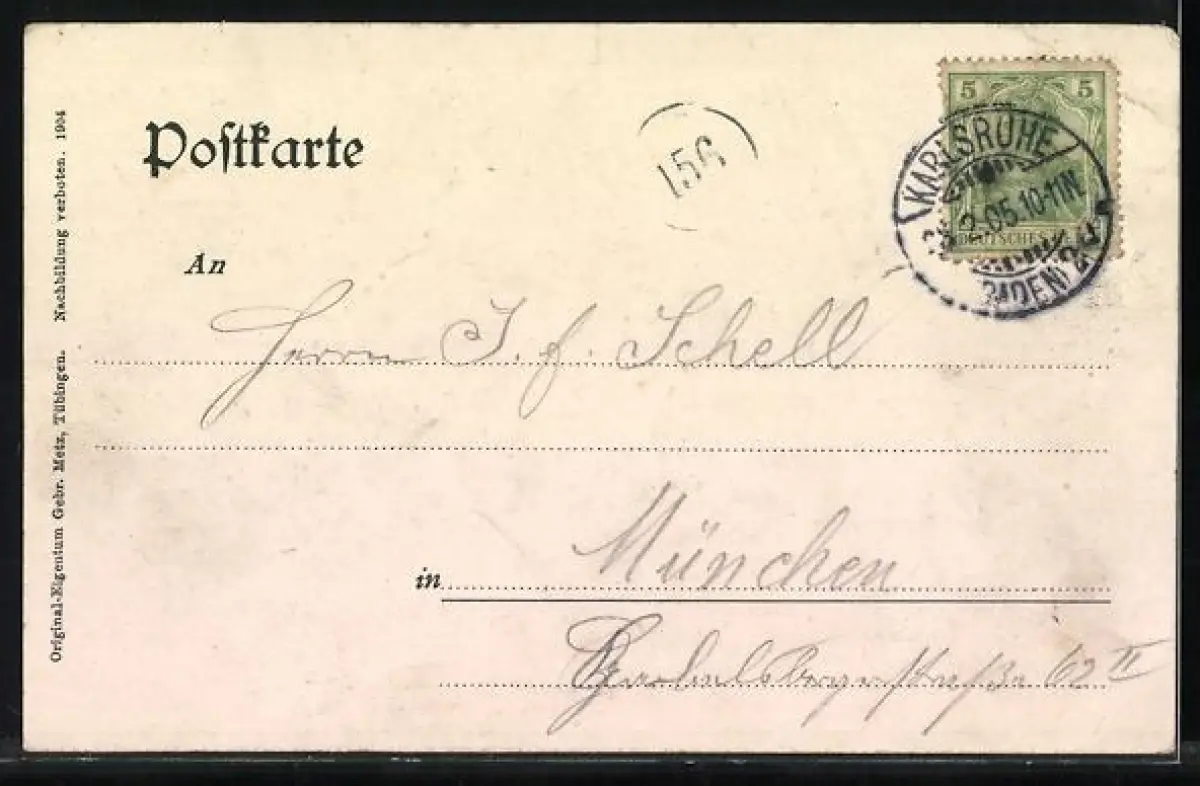 Postkarte
15G
5 5
KARLSRUHE
2.05.10-11N.
(BADEN) 2
DEUTSCHES
An
Herrn J. f. Schell
in München
straße 62 II
Original-Eigentum Gebr. Metz, Tübingen. Nachbildung verboten. 1904